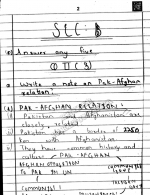 2
SEC: B
(a) Answer any five
Q II (3)
a Write a note on Pak-Afghan relation!
(A) PAK-AFGHAN RELATION!
Pakistan and Afghanistan are
closely related
Pakistan have a border of 2250
Km with Afghanistan
They have common history and
culture PAK-AFGHAN
AFGHAN OPPOSITION
TO PAK IN UN